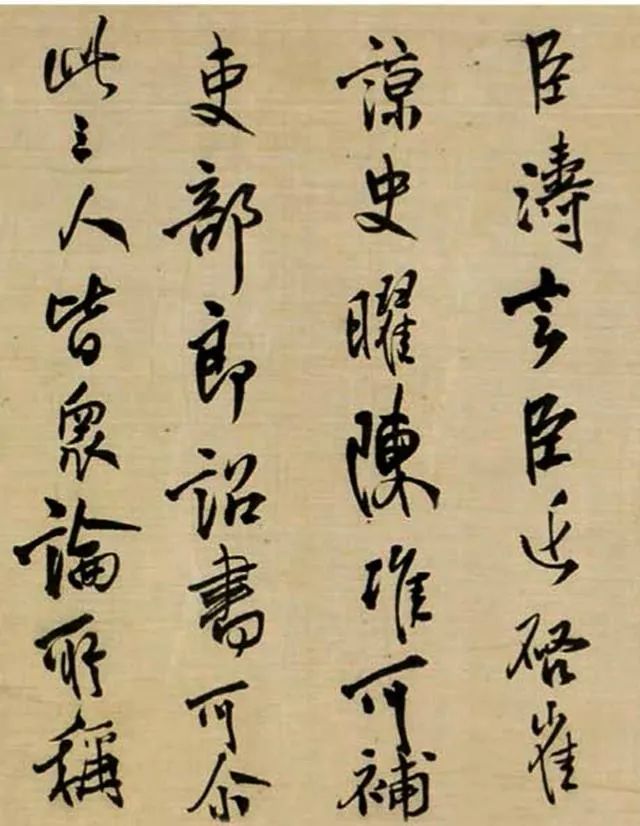 臣濤言臣近啓崔
諒史曜陳淮可補
吏部郎詔書可尒
此三人皆衆論所稱